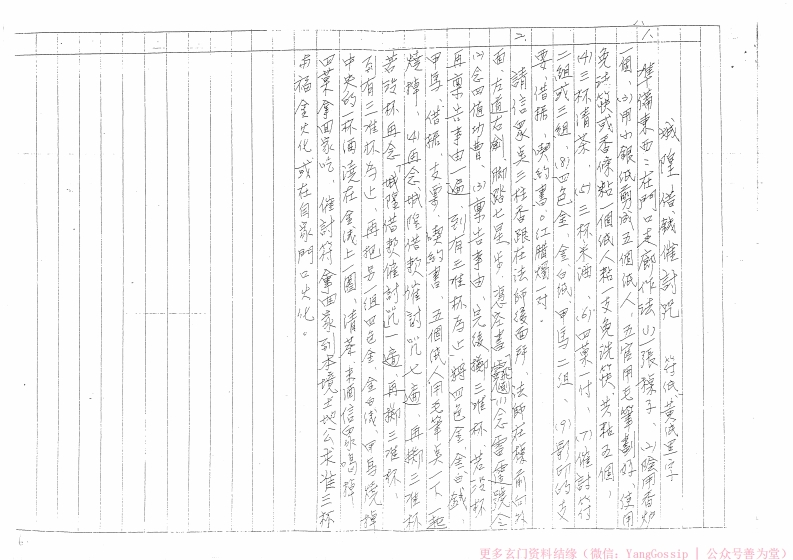 城隍借錢催討咒　符紙黃紙黑字
1. 準備東西：在門口走廊作法(1)一張樑子、(2)陰用香炉
一個、(3)用小銀紙剪成五個紙人、五官用毛筆劃好、使用
免洗筷或香條黏一個紙人黏一支免洗筷共黏五個，
(4)三杯清茶、(5)三杯米酒、(6)四菓付、(7)催討符
二組或三組、(8)四色金、金白紙、甲馬二組、(9)影印的支
要、借據、喫約書。紅腊燭一对。
2. 請信眾點三柱香跟在法師後面所、法師在樑前向外
面、左道右劍、腳踏七星步、憑空書 (1)念雷霆號令
(2)念四值功曹、(3)稟告事由、完後擲三准杯、若沒杯
再稟告事由一遍、到有三准杯為止、將四色金金白錢、
甲馬、借據、支票、喫約書、五個紙人用毛筆點一下一起
燒掉、(4)再念城隍借款催討咒七遍、再擲三准杯
若沒杯再念城隍借款催討咒一遍再擲三准杯、
到有三准杯為止、再把另一組四色金、金白錢、甲馬燒掉
中央的一杯酒澆在金錢上一圈、清茶米酒信眾喝掉
四菓拿回家吃、催討符拿回家到本境土地公求准三杯
與福金火化或在自家門口火化。
6
更多玄门资料结缘（微信：YangGossip | 公众号善为堂）